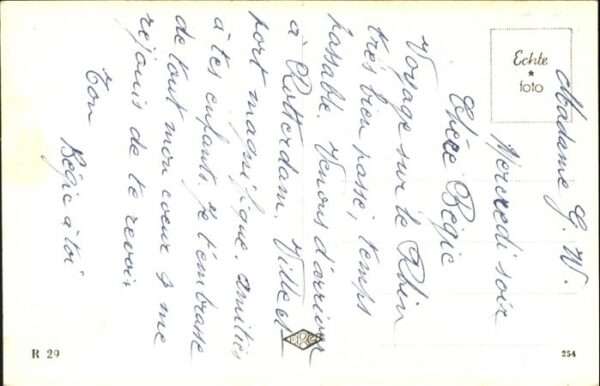 Madame G. W.
Mercredi soir
Chère Bégie
Voyage sur le Rhin
très bien passé, temps
passable. Venons d'arriver
à Rotterdam. Ville et
port magnifique. amitiés
à tes enfants. Je t'embrasse
de tout mon coeur & me
réjouis de te revoir,
Ton
Bégie à toi
Echte
foto
R 29
254